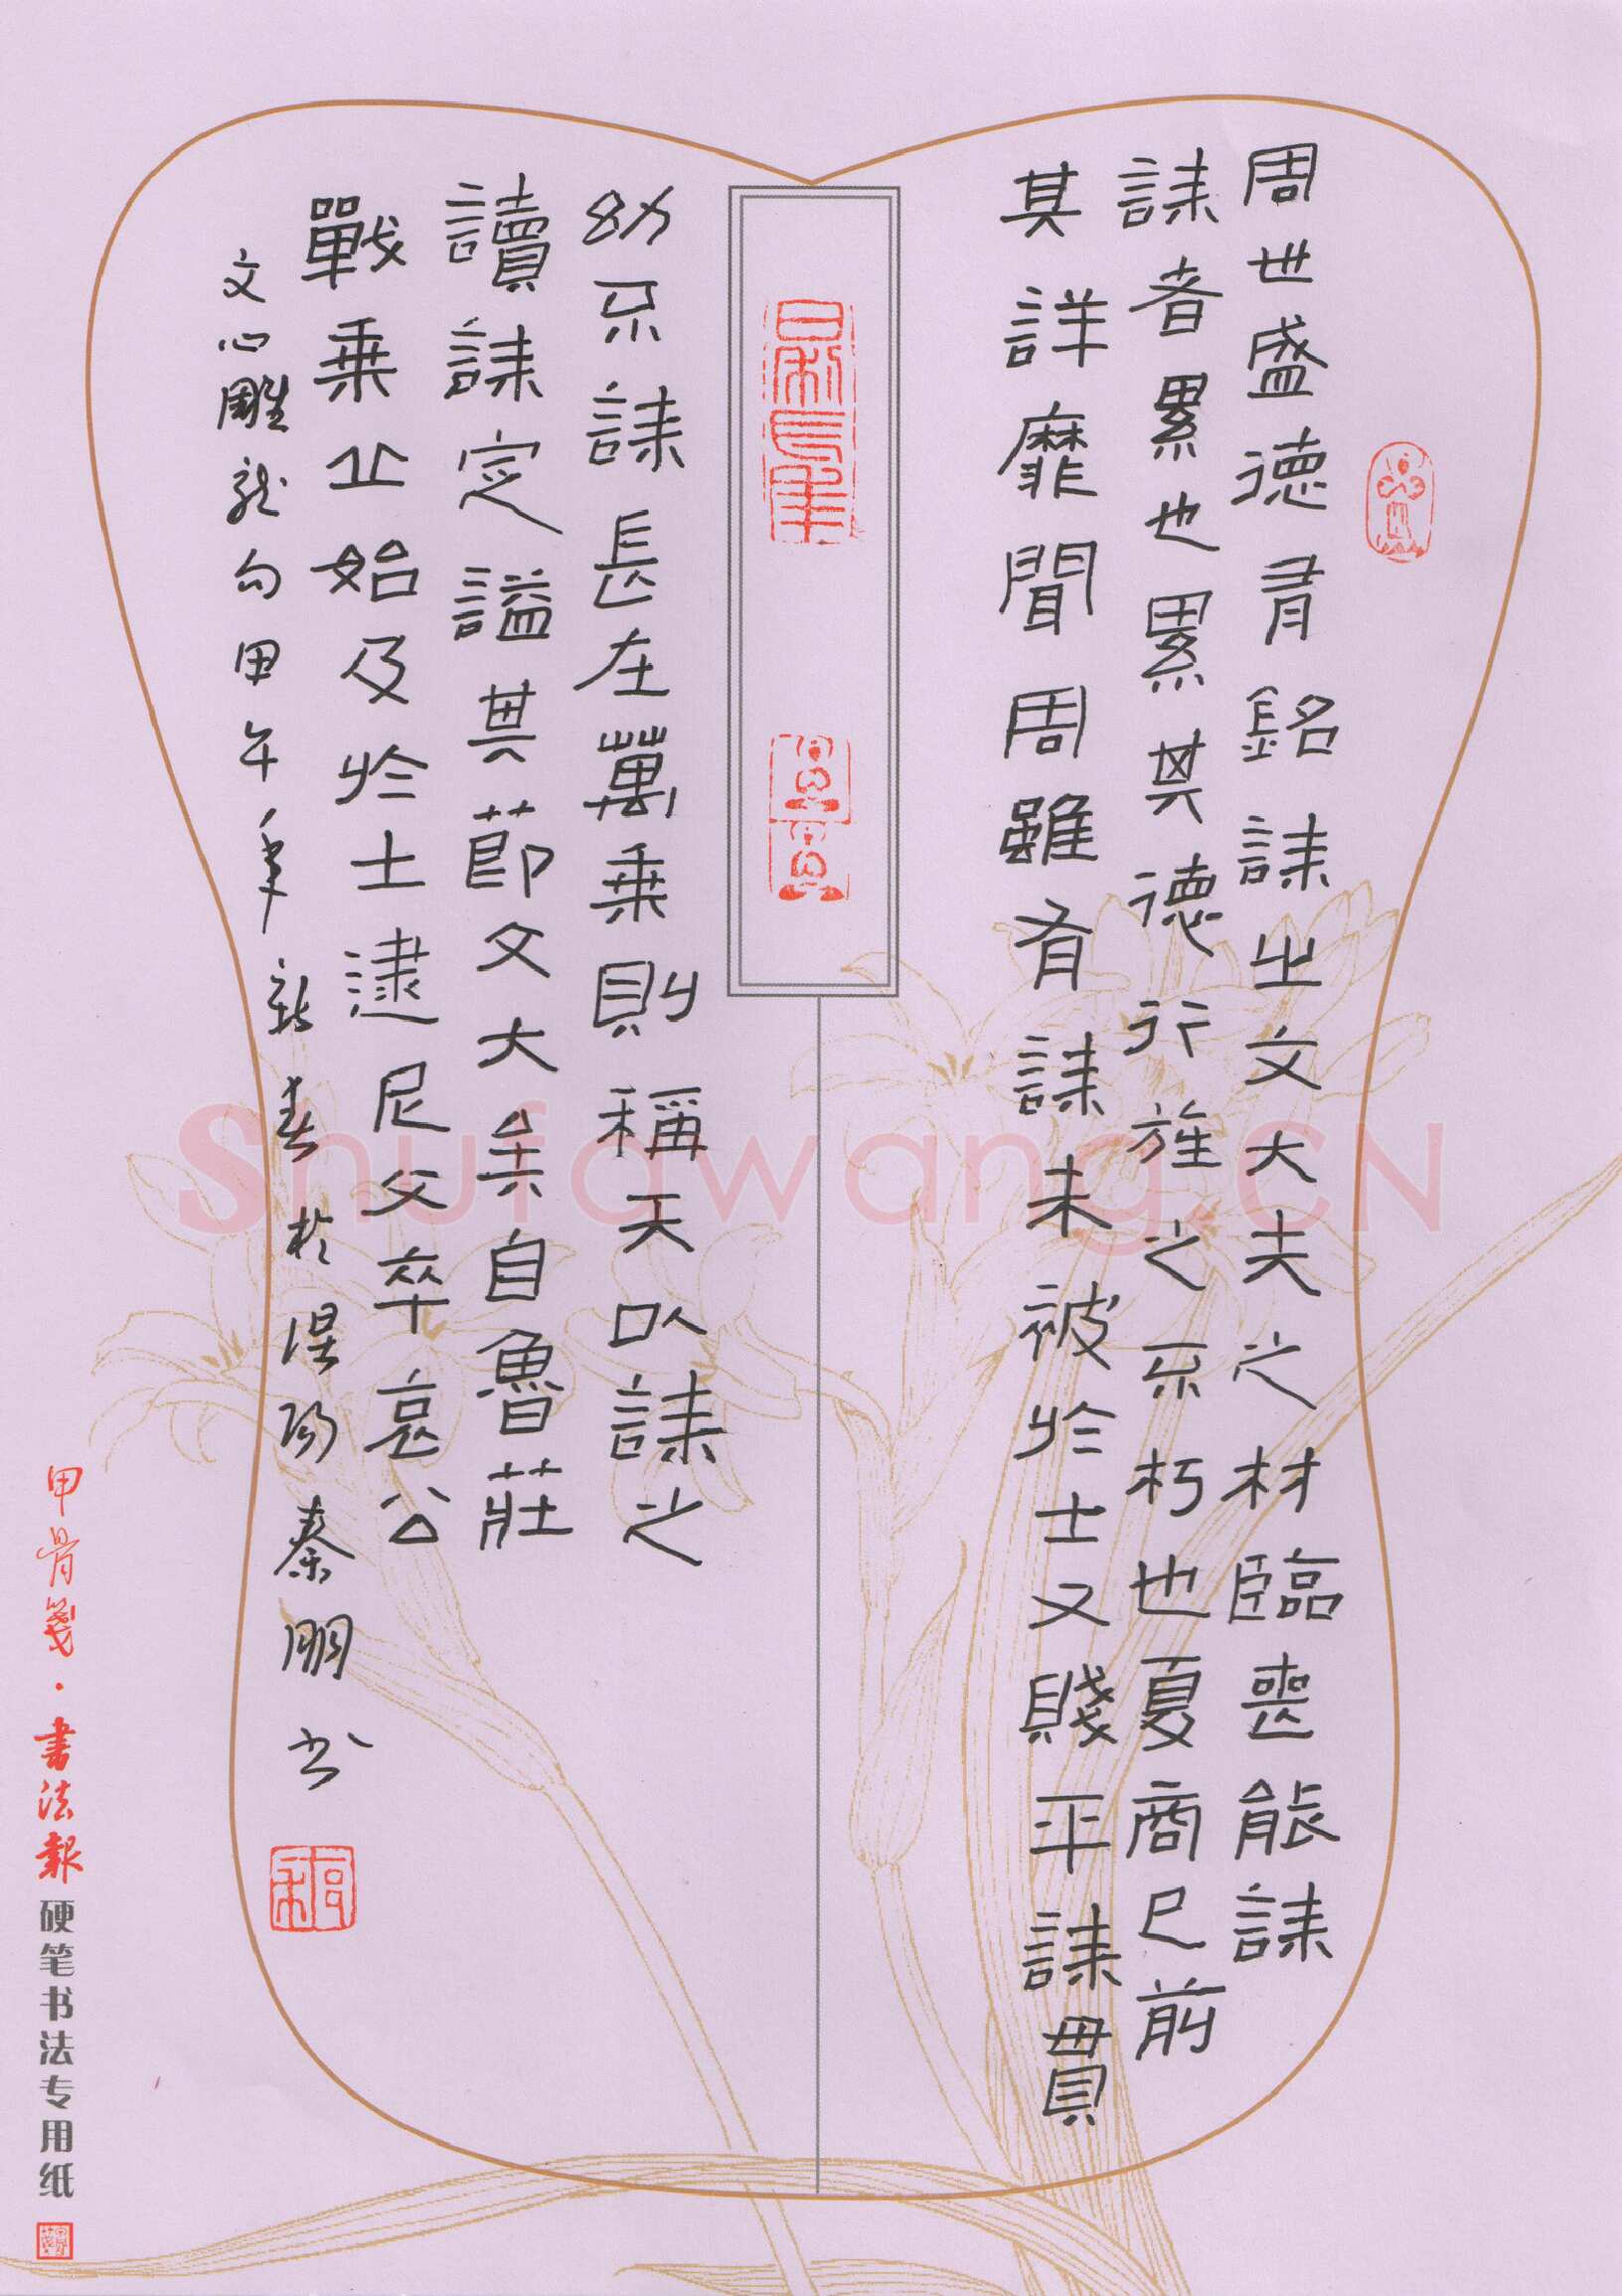 周世盛德有銘誄之文大夫之材臨喪能誄
誄者累也累其德行旌之不朽也夏商已前
其詳靡聞周雖有誄未被於士又賤不誄貴
幼不誄長在萬乘則稱天以誄之
讀誄定謚其節文大矣自魯莊
戰乘丘始及於士逮尼父卒哀公
文心雕龙句甲午年新春於秦朋书
甲骨箋·書法報硬笔书法专用纸
Shufawang.CN